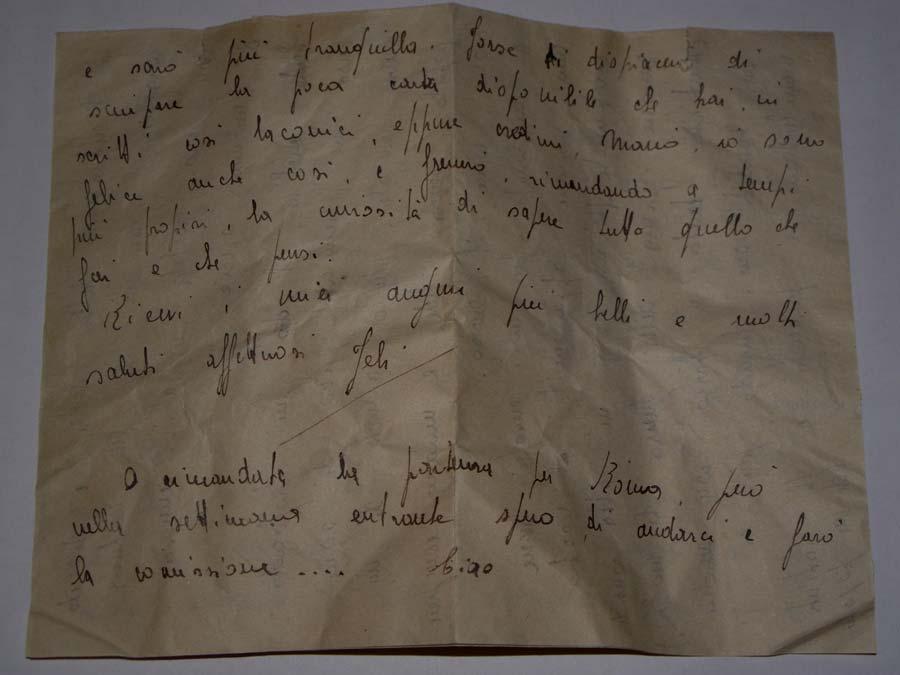 e sarò più tranquilla. Forse ti dispiacerà di
sciupare la poca carta disponibile che hai, in
scritti così laconici, eppure credimi, Mario, io sono
felice anche così, e frenerò, rimandando a tempi
più propizi, la curiosità di sapere tutto quello che
fai e che pensi.
Ricevi i miei auguri più belli e molti
saluti affettuosi
rimandata la partenza per Roma, però
nella settimana entrante spero di andarci e farò
la comissione .... Ciao